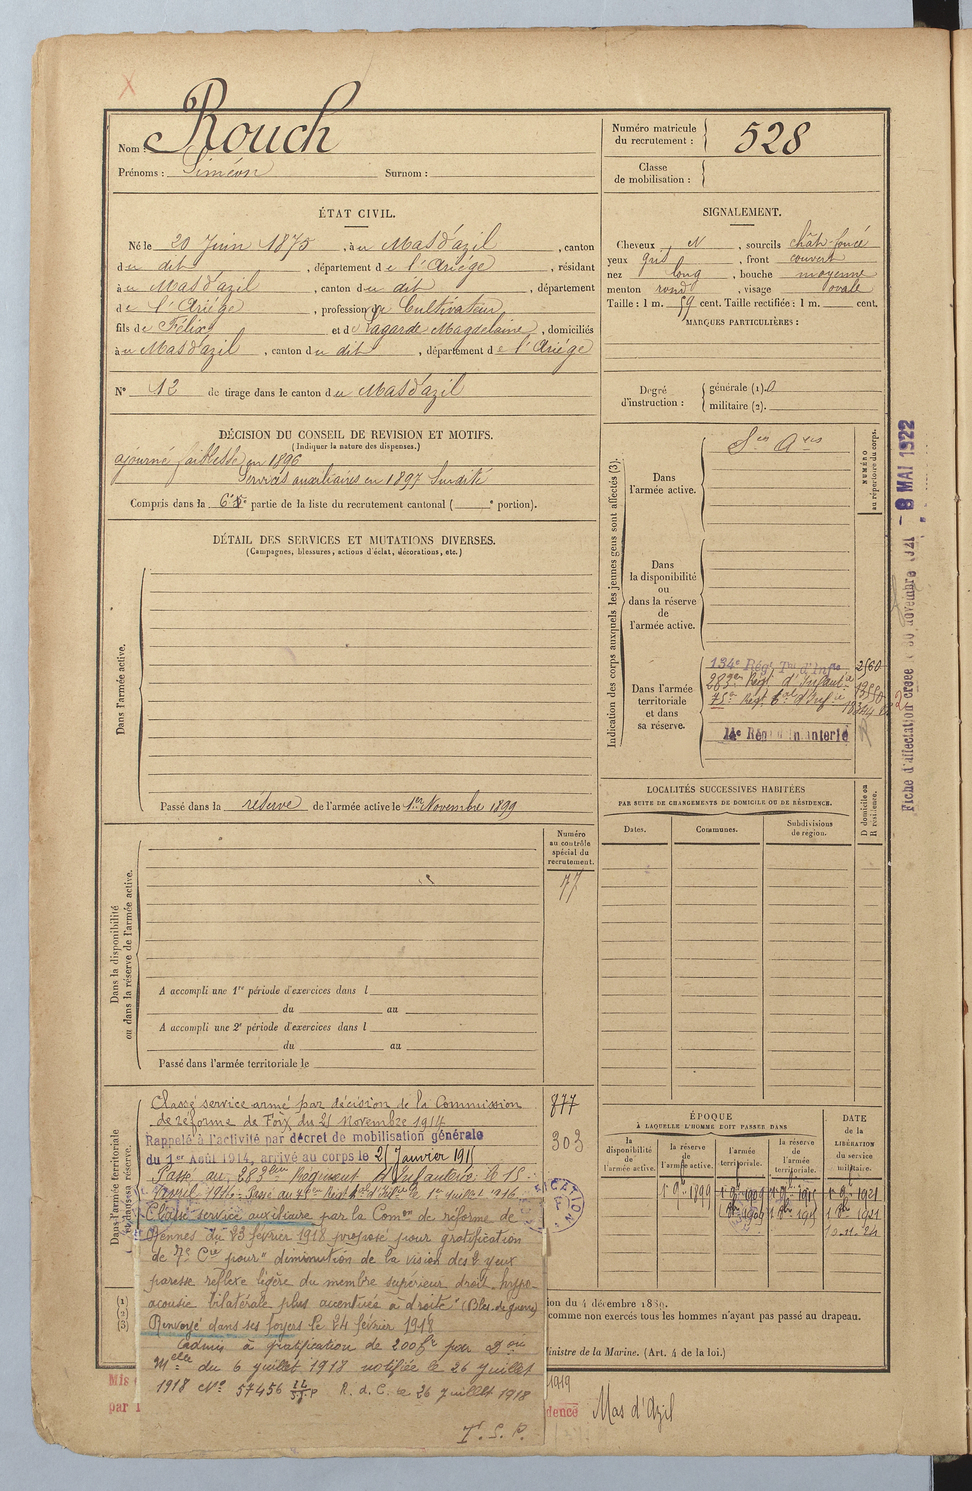 Nom : Rouch
Prénoms : Siméon Surnom :
Numéro matricule
du recrutement : 528
Classe
de mobilisation :
ÉTAT CIVIL.
Né le 20 Juin 1875, à u Mas d'azil, canton
du dit, département de l'Ariége, résidant
à u Mas d'azil, canton du dit, département
de l'Ariége, profession de Cultivateur,
fils de Félix et de Lagarde Magdelaine, domiciliés
à u Mas d'azil, canton du dit, département de l'Ariége
N° 12 de tirage dans le canton du Mas d'azil
SIGNALEMENT.
Cheveux N, sourcils chât-foncé
yeux gris, front couvert
nez long, bouche moyenne
menton rond, visage ovale
Taille : 1 m. 59 cent. Taille rectifiée : 1 m. cent.
MARQUES PARTICULIÈRES :
Degré
d'instruction :
générale (1). 0
militaire (2).
DÉCISION DU CONSEIL DE REVISION ET MOTIFS.
(Indiquer la nature des dispenses.)
ajourné faiblesse en 1896
Services auxiliaires en 1897 Surdité
Compris dans la 6e partie de la liste du recrutement cantonal ( e portion).
DÉTAIL DES SERVICES ET MUTATIONS DIVERSES.
(Campagnes, blessures, actions d'éclat, décorations, etc.)
Dans l'armée active.
Passé dans la réserve de l'armée active le 1er Novembre 1899
Indication des corps auxquels les jeunes gens sont affectés (3).
Dans
l'armée active.
Ses Ares
NUMÉRO
au répertoire du corps.
Dans
la disponibilité
ou
dans la réserve
de
l'armée active.
Dans l'armée
territoriale
et dans
sa réserve.
134e Régt Tal d'Infie 2560
283em Régt d'Infantie
75e Régt tal d'Infie
14e Rég d'Infanterie
Fiche d'affectation créée le 30 novembre 1921 - 8 MAI 1922
LOCALITÉS SUCCESSIVES HABITÉES
PAR SUITE DE CHANGEMENTS DE DOMICILE OU DE RÉSIDENCE.
Dates.
Communes.
Subdivisions
de région.
D domicile ou
R résidence.
Dans la disponibilité
ou dans la réserve de l'armée active.
Numéro
au contrôle
spécial du
recrutement.
77
A accompli une 1re période d'exercices dans l
du au
A accompli une 2e période d'exercices dans l
du au
Passé dans l'armée territoriale le
Dans l'armée territoriale
et dans sa réserve.
Classé service armé par décision de la Commission
de réforme de Foix du 21 Novembre 1914
Rappelé à l'activité par décret de mobilisation générale
du 1er Août 1914, arrivé au corps le 21 Janvier 1915
Passé au 283ème Régiment d'Infanterie le 15
avril 1916. Passé au 75e Régt tal d'Infie le 1er Juillet 1916
Classé service auxiliaire par la Comon de réforme de
Rennes du 23 février 1918 proposé pour gratification
de 7e Cie pour "diminution de la vision des 2 yeux
paresse reflexe légère du membre supérieur droit hypo-
acousie bilatérale plus accentuée à droite" (Bles. de guerre)
Renvoyé dans ses foyers le 24 février 1918
admis à gratification de 200 fr par Don
Melle du 6 juillet 1918 notifiée le 26 Juillet
1918 N° 57456 R. d. C. le 26 Juillet 1918
T. S. P.
877
303
ÉPOQUE
À LAQUELLE L'HOMME DOIT PASSER DANS
la
disponibilité
de
l'armée active.
la réserve
de
l'armée active.
l'armée
territoriale.
la réserve
de
l'armée
territoriale.
DATE
de la
LIBÉRATION
du service
militaire.
1er 9bre 1899 1er 9bre 1909 1er 9bre 1915 1er 9bre 1921
10.11.24
(1)
(2)
(3)
ion du 4 décembre 1889.
comme non exercés tous les hommes n'ayant pas passé au drapeau.
inistre de la Marine. (Art. 4 de la loi.)
Mis
par l
1919
dence Mas d'Azil